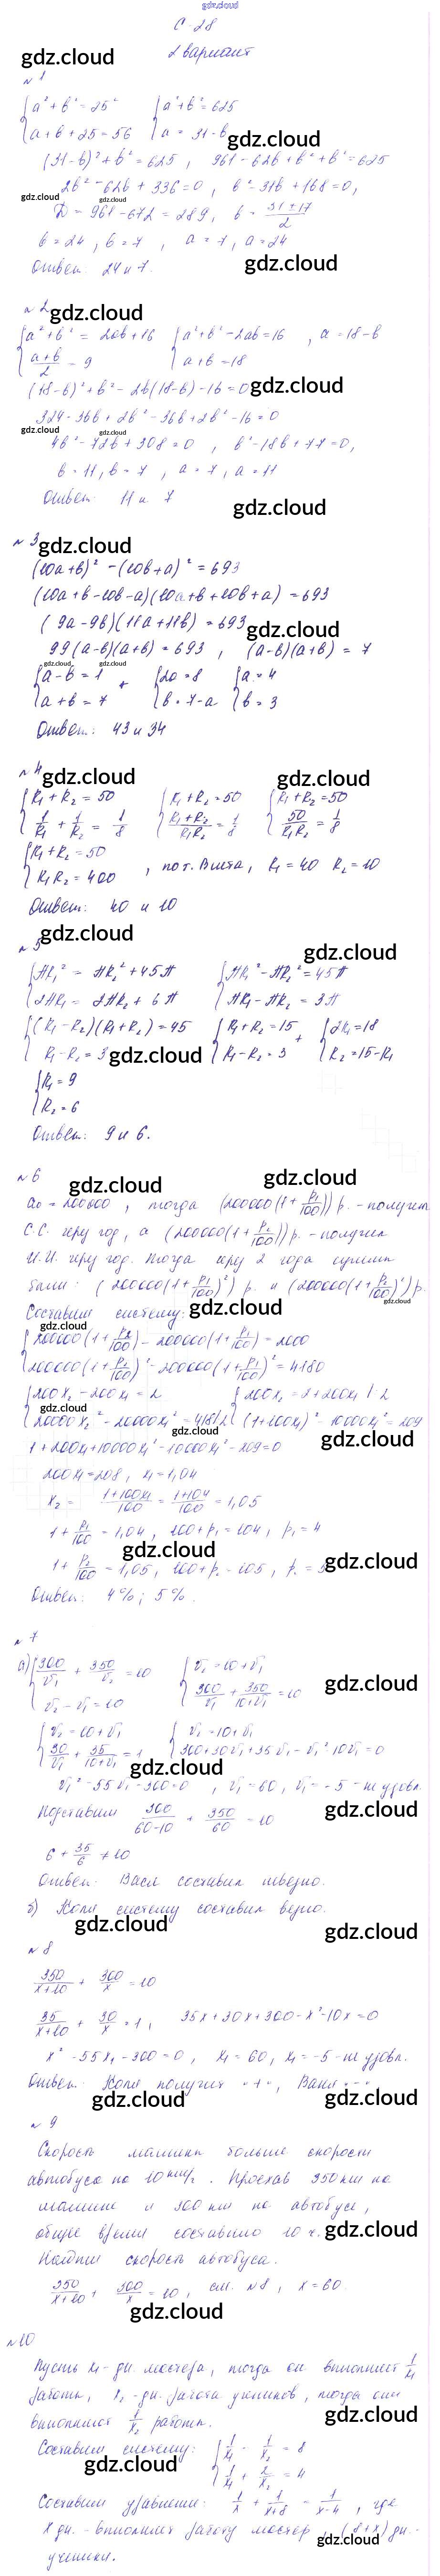 gdz.cloud
С-28
2 вариант
gdz.cloud
№ 1
{a² + b² = 25² {a² + b² = 625
a + b + 25 = 56 a = 31 - b
gdz.cloud
(31-b)² + b² = 625, 961 - 62b + b² + b² = 625
gdz.cloud 2b² - 62b + 336 = 0, b² - 31b + 168 = 0,
gdz.cloud
D = 961 - 672 = 289, b = (31 ± 17)/2
b = 24, b = 7, a = 7, a = 24
Ответ: 24 и 7. gdz.cloud
№ 2 gdz.cloud
{a² + b² = 2ab + 16 {a² + b² - 2ab = 16, a = 18 - b
(a+b)/2 = 9 a + b = 18
(18-b)² + b² - 2b(18-b) - 16 = 0 gdz.cloud
324 - 36b + 2b² - 36b + 2b² - 16 = 0
gdz.cloud gdz.cloud
4b² - 72b + 308 = 0, b² - 18b + 77 = 0,
b = 11, b = 7, a = 7, a = 11
Ответ: 11 и 7
gdz.cloud
№ 3 gdz.cloud
(10a+b)² - (10b+a)² = 693
(10a+b-10b-a)(10a+b+10b+a) = 693
(9a-9b)(11a+11b) = 693 gdz.cloud
99(a-b)(a+b) = 693, (a-b)(a+b) = 7
gdz.cloud gdz.cloud
{a - b = 1 + {2a = 8 {a = 4
a + b = 7 b = 7 - a b = 3
Ответ: 43 и 34
№ 4 gdz.cloud gdz.cloud
{R₁ + R₂ = 50 {R₁ + R₂ = 50 {R₁ + R₂ = 50
1/R₁ + 1/R₂ = 1/8 (R₁+R₂)/(R₁R₂) = 1/8 50/(R₁R₂) = 1/8
{R₁ + R₂ = 50
R₁R₂ = 400, по т. Виета, R₁ = 40 R₂ = 10
Ответ: 40 и 10
gdz.cloud
№ 5 gdz.cloud
{πR₁² = πR₂² + 45π {πR₁² - πR₂² = 45π
2πR₁ = 2πR₂ + 6π πR₁ - πR₂ = 3π
{(R₁ - R₂)(R₁ + R₂) = 45 {R₁ + R₂ = 15 + {2R₁ = 18
R₁ - R₂ = 3 gdz.cloud R₁ - R₂ = 3 R₂ = 15 - R₁
{R₁ = 9
R₂ = 6
Ответ: 9 и 6.
№ 6 gdz.cloud gdz.cloud
a₀ = 200000, тогда (200000(1 + p₁/100)) р. - получит
С.С. через год, а (200000(1 + p₂/100)) р. - получит
И.И. через год. Тогда через 2 года суммы
были: (200000(1 + p₁/100)²) р. и (200000(1 + p₂/100)²) р.
gdz.cloud
Составим систему: gdz.cloud
gdz.cloud
{200000(1 + p₂/100) - 200000(1 + p₁/100) = 2000
200000(1 + p₂/100)² - 200000(1 + p₁/100)² = 4180
gdz.cloud
{200x₂ - 200x₁ = 2 {200x₂ = 2 + 200x₁ | : 2
20000x₂² - 20000x₁² = 418 | : 2 (1 + 100x₁)² - 10000x₁² = 209
gdz.cloud gdz.cloud
1 + 200x₁ + 10000x₁² - 10000x₁² - 209 = 0
200x₁ = 208, x₁ = 1,04
x₂ = (1 + 100x₁)/100 = (1 + 104)/100 = 1,05
1 + p₁/100 = 1,04, 100 + p₁ = 104, p₁ = 4
gdz.cloud
1 + p₂/100 = 1,05, 100 + p₂ = 105, p₂ = 5 gdz.cloud
Ответ: 4%; 5%.
№ 7
а) {300/v₁ + 350/v₂ = 10 {v₂ = 10 + v₁
v₂ - v₁ = 10 300/v₁ + 350/(10+v₁) = 10
gdz.cloud
{v₂ = 10 + v₁ {v₂ = 10 + v₁
30/v₁ + 35/(10+v₁) = 1 300 + 30v₁ + 35v₁ - v₁² - 10v₁ = 0
gdz.cloud
v₁² - 55v₁ - 300 = 0, v₁ = 60, v₁ = -5 - не удовл.
Подставим 300/(60-10) + 350/60 = 10 gdz.cloud
6 + 35/6 ≠ 10
Ответ: Вася составил неверно.
б) Коля систему составил верно.
gdz.cloud gdz.cloud
№ 8
350/(x+10) + 300/x = 10
35/(x+10) + 30/x = 1, 35x + 30x + 300 - x² - 10x = 0
x² - 55x - 300 = 0, x₁ = 60, x₁ = -5 - не удовл.
Ответ: Коля получит "+", Ваня "-"
gdz.cloud gdz.cloud
№ 9
Скорость машины больше скорости
автобуса на 10 км/ч. Проехав 350 км на
машине и 300 км на автобусе,
общее время составило 10 ч. gdz.cloud
Найти скорость автобуса.
350/(x+10) + 300/x = 10, см. № 8, x = 60
gdz.cloud
№ 10
Пусть x₁ - дн. мастера, тогда он выполнит 1/x₁
работы, x₂ - дн. работа учеников, тогда они
выполняют 1/x₂ работы. gdz.cloud
Составим систему: {1/x₁ - 1/x₂ = 8
gdz.cloud 1/x₁ + 2/x₂ = 4
Составим уравнение: 1/x + 1/(x+8) = 1/(x-4), где
x дн. - выполнит работу мастер, (8+x) дн. -
gdz.cloud
ученики.